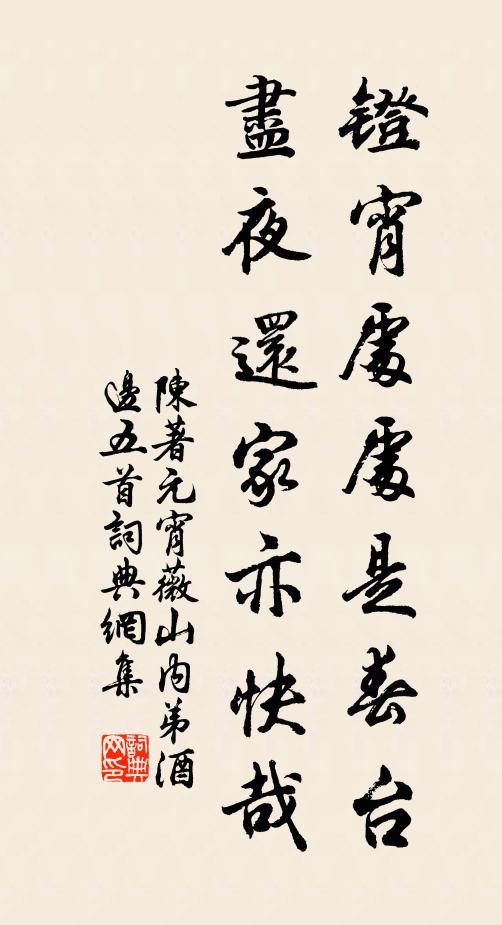 鐙宵處處是春台
盡夜還家亦快哉
陳著元宵薇山內弟酒
邊五首詞典網集
詞典網印